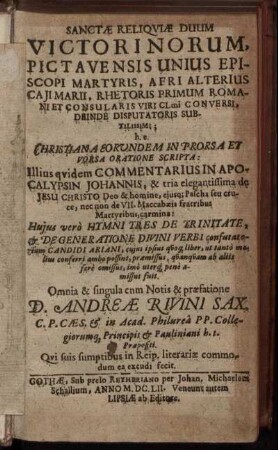 SANCTÆ RELIQVIÆ DUUM
VICTORINORUM,
PICTAVENSIS UNIUS EPI-
SCOPI MARTYRIS, AFRI ALTERIUS
CAJI MARII, RHETORIS PRIMUM ROMA-
NI ET CONSULARIS VIRI CLmi CONVERSI,
DEINDE DISPUTATORIS SUB-
TILISSIMI;
h. e.
CHRISTIANA EORUNDEM IN PRORSA ET
VORSA ORATIONE SCRIPTA:
Illius qvidem COMMENTARIUS IN APO-
CALYPSIN JOHANNIS, & tria elegantissima de
JESU CHRISTO Deo & homine, ejusq; Pascha seu cru-
ce, necnon de VII. Maccabæis fratribus
Martyribus, carmina:
Hujus verò HYMNI TRES DE TRINITATE,
& DE GENERATIONE DIVINI VERBI confutatio
CANDIDI ARIANI, cujus ipsius qvoq; liber, ut tantò me-
lius conferri ambo possint, præmissus, qvanqvam ab aliis
ferè omissus, imò uterq; penè a-
missus fuit.
Omnia & singula cum Notis & præfatione
D. ANDREÆ RIVINI SAX.
C. P. CÆS, & in Acad. Philureâ PP. Colle-
giorumq; Principis & Pauliniani h. t.
Præpositi.
Qvi suis sumptibus in Reip. literariæ commo-
dum ea excudi fecit.
GOTHÆ, Sub prelo REYHERIANO per Johan. Michaelem
Schallium, ANNO M.DC.LII. Veneunt autem
LIPSIÆ ab Editore.